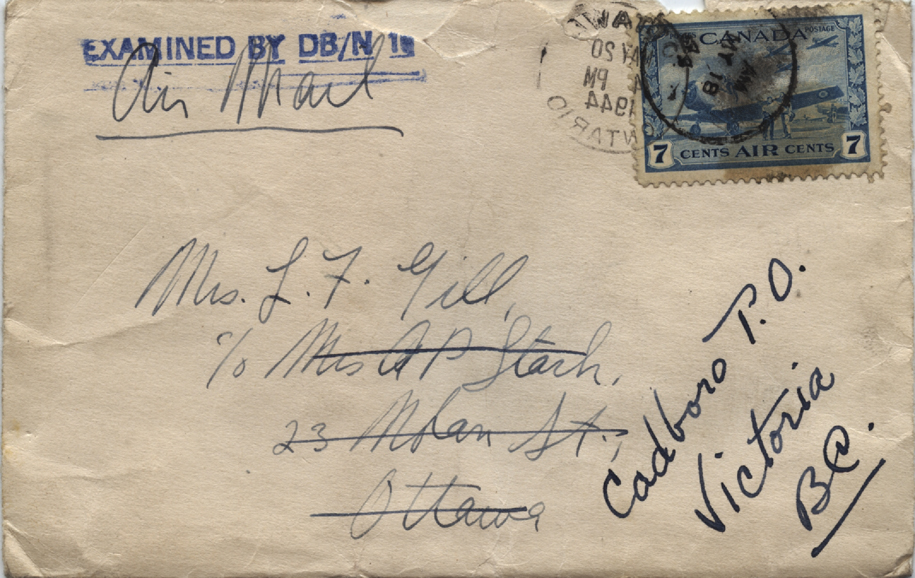 EXAMINED BY DB/N
Air Mail
CANADA
POSTAGE
MY 18
AM
44
MAY 20
PM
1944
ONTARIO
7 CENTS AIR CENTS 7
Mrs. L. F. Gill,
c/o Mrs A P Stark,
23 Nolan St.,
Ottawa
Cadboro P.O.
Victoria
BC.